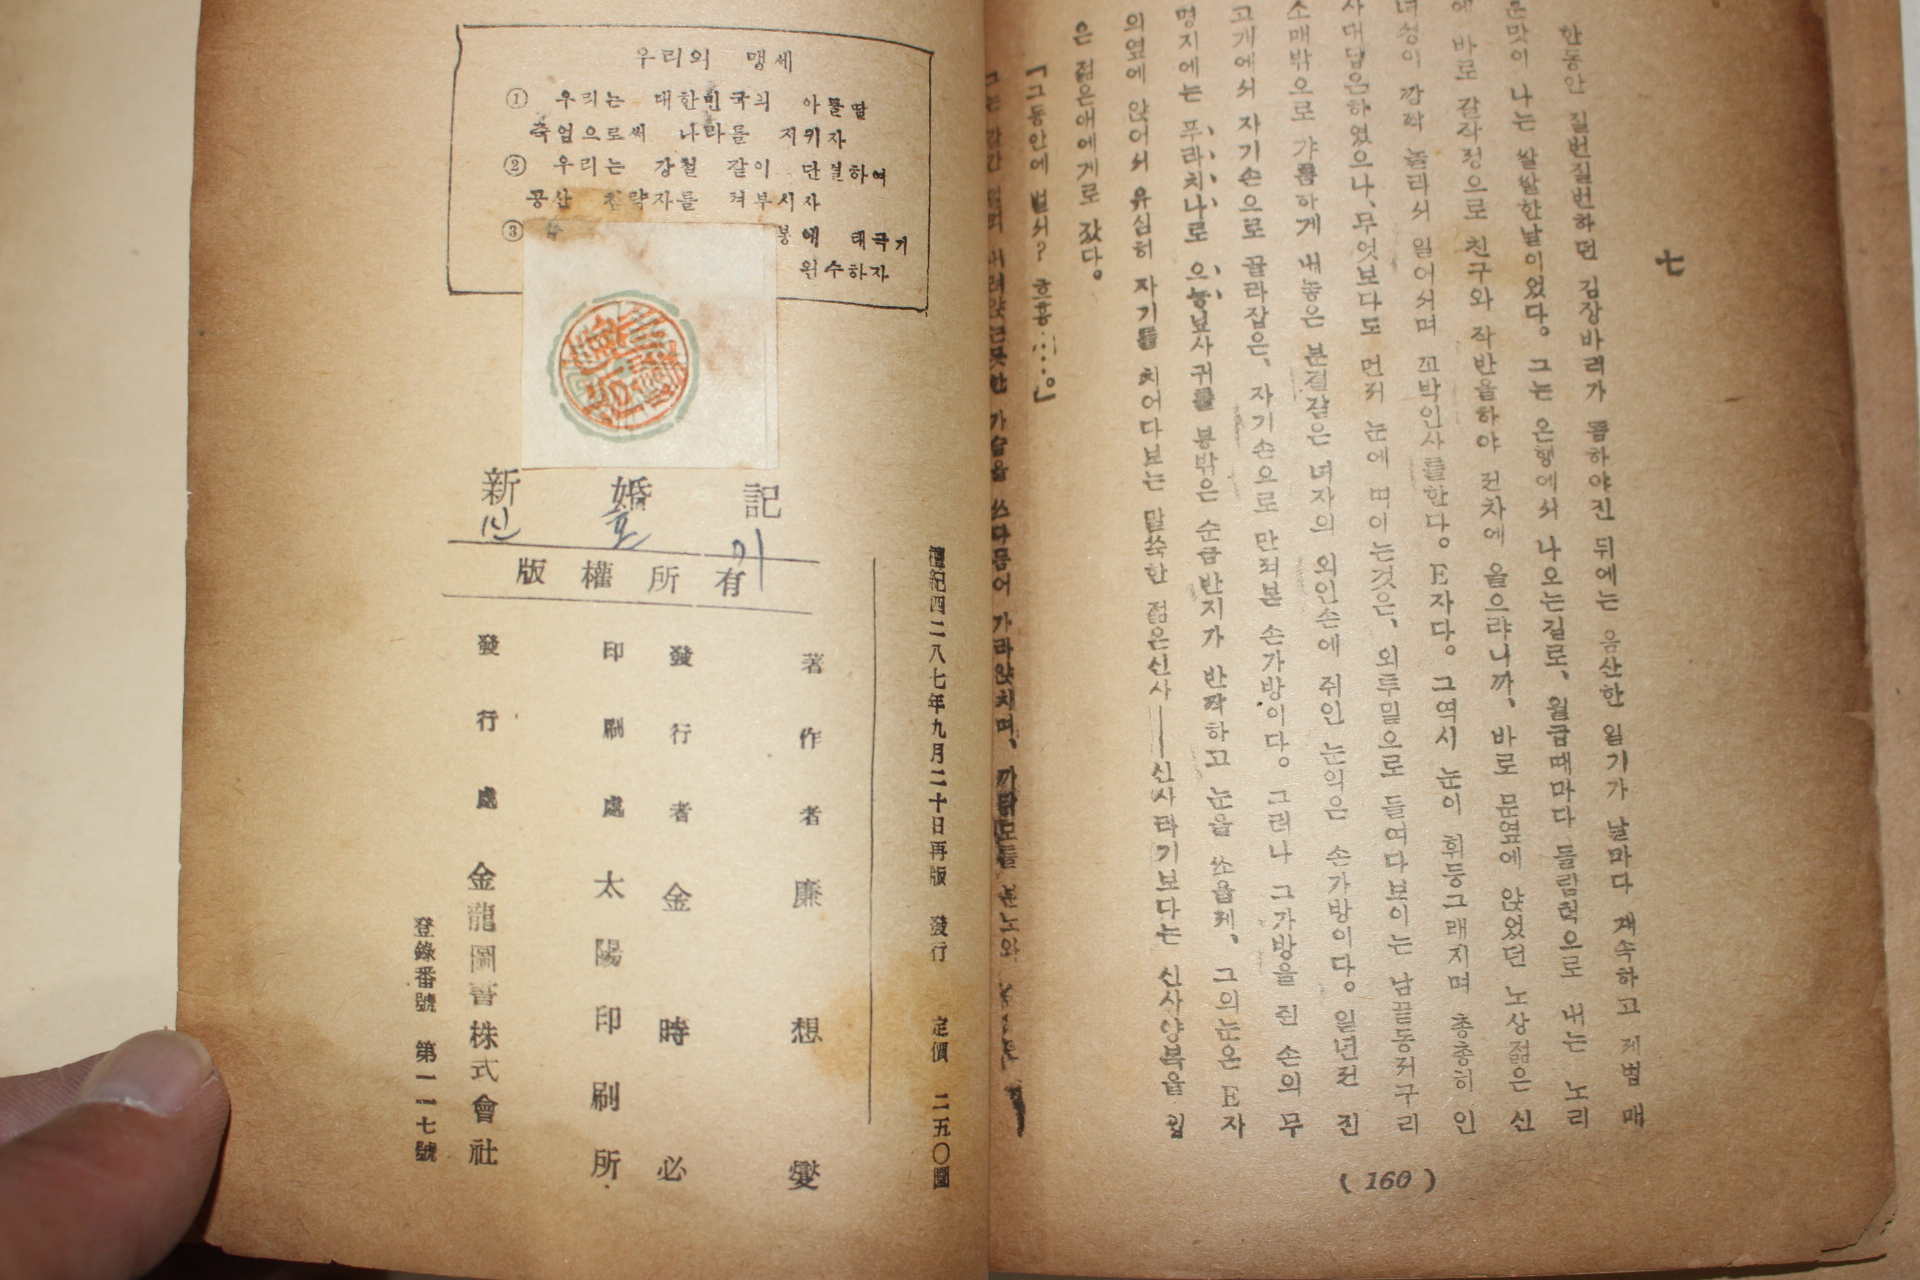 七
한동안 질번질번하던 김장바리가 뜸하야진 뒤에는 음산한 일기가 날마다 계속하고 제법 매
운맛이 나는 쌀쌀한날이었다。 그는 은행에서 나오는길로、 월급때마다 들림턱으로 내는 노리
에 바로 갈작정으로 친구와 작반을하야 전차에 올으랴니까、 바로 문옆에 앉었던 노상젊은 신
녀성이 깜짝 놀라서 일어서며 꼬박인사를한다。 E자다。 그역시 눈이 휘둥그래지며 총총히 인
사대답은하였으나、 무엇보다도 먼저 눈에 띄이는것은、 외투밑으로 들여다보이는 남끝동저구리
소매밖으로 갸름하게 내놓은 분결같은 녀자의 외인손에 쥐인 눈익은 손가방이다。 일년전 진
고개에서 자기손으로 골라잡은、 자기손으로 만저본 손가방이다。 그러나 그가방을 쥔 손의 무
명지에는 푸라치나로 으능보사귀를 봉밖은 순금반지가 반짝하고 눈을 쏘을제、 그의눈은 E자
의옆에 앉어서 유심히 자기를 치어다보는 말쑥한 젊은신사──신사라기보다는 신사양복을 입
은 젊은애에게로 갔다。
『그동안에 벌서? 흐흥……。』
그는 잠간 내려앉는듯한 가슴을 쓰다듬어 가라앉치며、 까닭모를 분노와
( 160 )
우리의 맹세
① 우리는 대한민국의 아들딸
죽엄으로써 나라를 지키자
② 우리는 강철 같이 단결하여
공산 침략자를 쳐부시자
③ 봉에 태극기
완수하자
新婚記
신혼기
版權所有
檀紀四二八七年九月二十日再版 發行 定價 二五〇圜
著作者 廉想燮
發行者 金時必
印刷處 太陽印刷所
發行處 金龍圖書株式會社
登錄番號 第一一七號